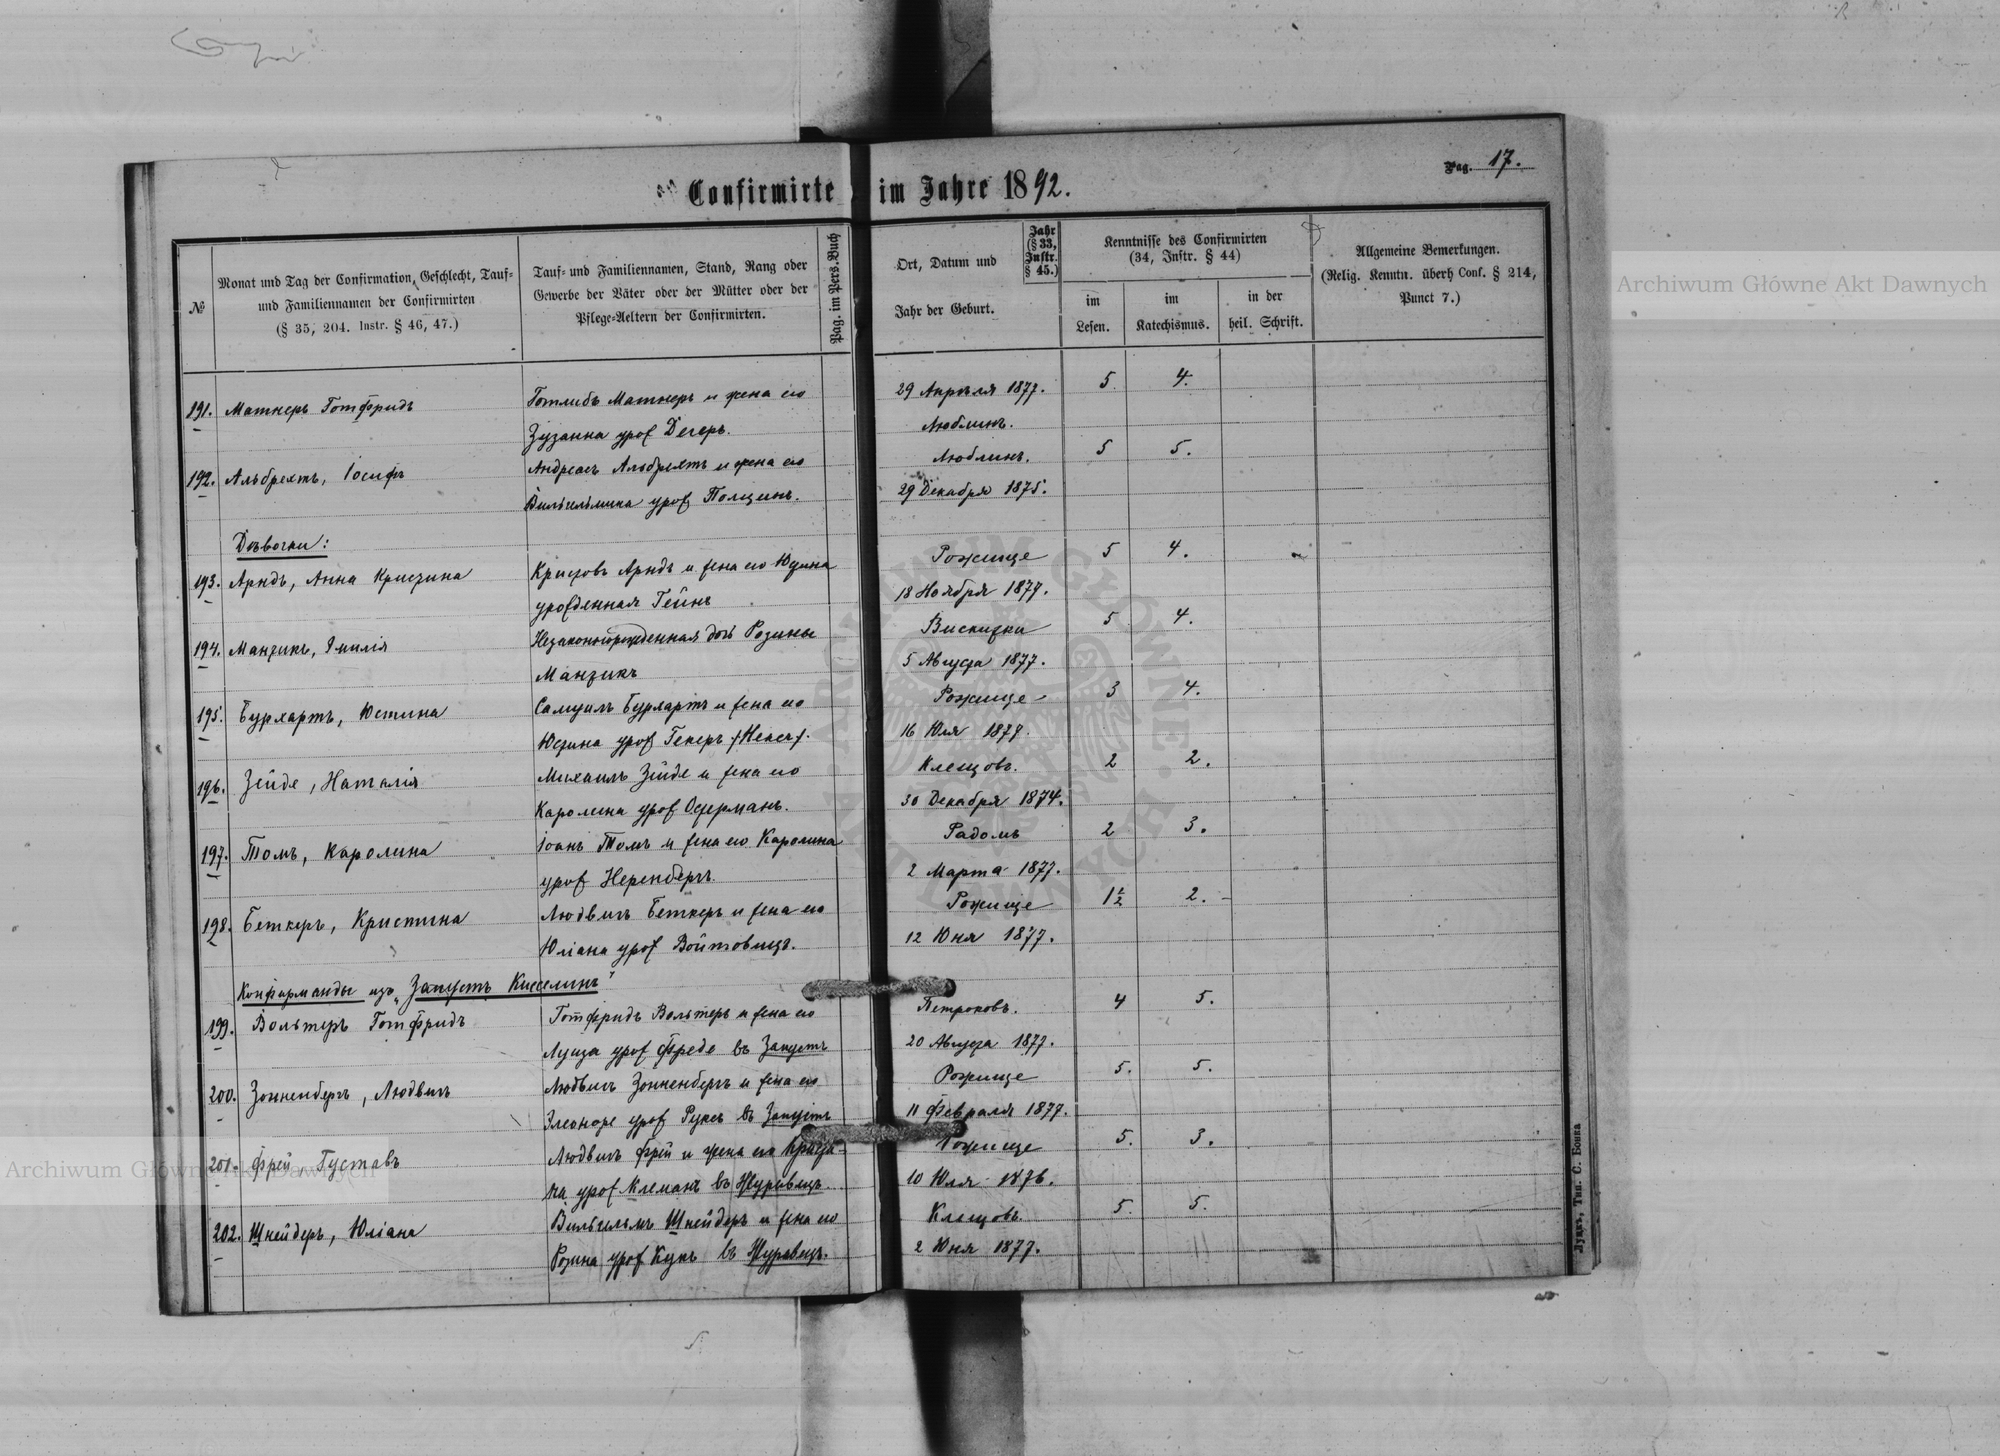 Confirmirte im Jahre 1892.
Pag. 17.
№
Monat und Tag der Confirmation, Geschlecht, Tauf-
und Familiennamen der Confirmirten
(§ 35, 204. Instr. § 46, 47.)
Tauf- und Familiennamen, Stand, Rang oder
Gewerbe der Väter oder der Mütter oder der
Pflege-Aeltern der Confirmirten.
Pag. im Pers.Buch
Ort, Datum und
Jahr der Geburt.
Jahr
(§ 33,
Instr.
§ 45.)
Kenntnisse des Confirmirten
(34, Instr. § 44)
im
Lesen.
im
Katechismus.
in der
heil. Schrift.
Allgemeine Bemerkungen.
(Relig. Kenntn. überh Conf. § 214,
Punct 7.)
191. Матнеръ Готфридъ Готлибъ Матнеръ и жена его 29 Апрѣля 1877. 5 4.
Зузанна урож Дегеръ. Люблинъ.
192. Альбрехтъ, Іосифъ Андреасъ Альбрехтъ и жена его Люблинъ. 5 5.
Вильгельмина урож Полцинъ. 29 Декабря 1875.
Дѣвочки:
193. Арндъ, Анна Кристина Кристовъ Арндъ и жена его Юстина Рожище 5 4.
урожденная Гейнъ 18 Ноября 1877.
194. Манзикъ, Эмилія Незаконнорожденная дочь Розины Вискитки 5 4.
Манзикъ 5 Августа 1877.
195. Бурхартъ, Юстина Самуилъ Бурхартъ и жена его Рожище 3 4.
Юстина урож Гекеръ 16 Юля 1877.
196. Зейде, Наталія Михаилъ Зейде и жена его Клещовъ. 2 2.
Каролина урож Остерманъ. 30 Декабря 1874.
197. Томъ, Каролина Іоанъ Томъ и жена его Каролина Радомъ 2 3.
урож Неренбергъ. 2 Марта 1877.
198. Беткеръ, Кристина Людвигъ Беткеръ и жена его Рожище 1½ 2.
Юліана урож Войтовицъ. 12 Юня 1877.
Конфирманды изъ „Запустъ Киселинъ"
199. Вольтеръ Готфридъ Готфридъ Вольтеръ и жена его Петроковъ. 4 5.
Луиза урож Фреде въ Запустъ 20 Августа 1877.
200. Зонненбергъ, Людвигъ Людвигъ Зонненбергъ и жена его Рожище 5. 5.
Элеоноре урож Руксъ въ Запустъ 11 Февраля 1877.
201. Фрей, Густавъ Людвигъ Фрей и жена его Кристи- Рожище 5. 3.
на урож Клеманъ въ Журавецъ. 10 Юля 1876.
202. Шнейдеръ, Юліана Вильгельмъ Шнейдеръ и жена его Клещовъ 5. 5.
Розина урож Кукъ въ Журавецъ. 2 Юня 1877.
Луцкъ, Тип. С. Бонка
Archiwum Główne Akt Dawnych
Archiwum Główne Akt Dawnych